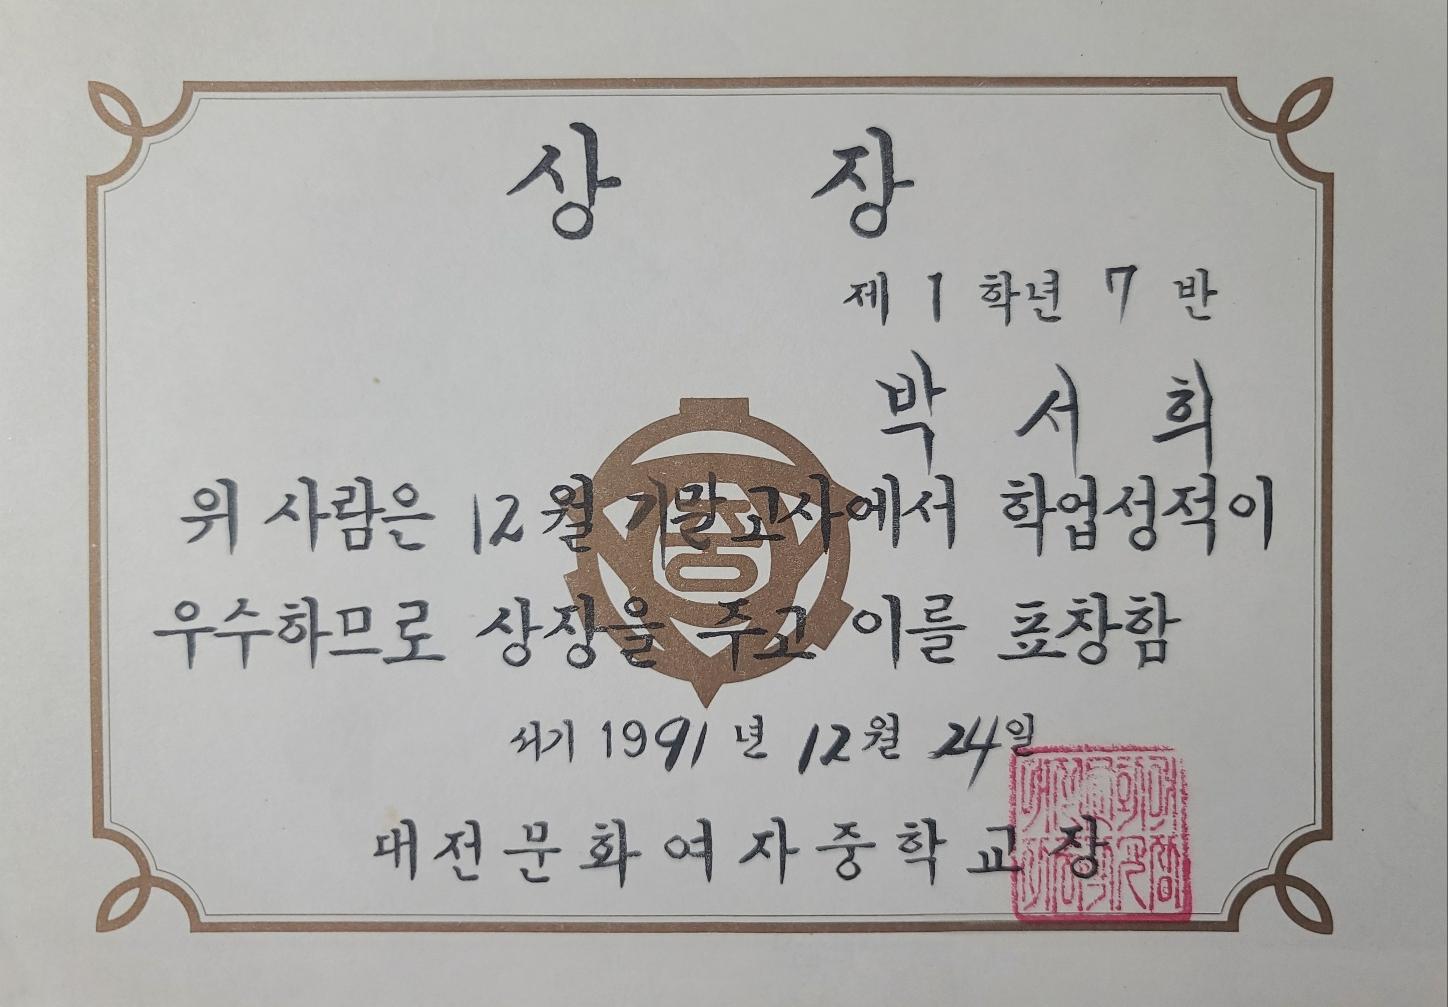 상 장
제 1 학년 7 반
박 서 희
위 사람은 12월 기말고사에서 학업성적이
우수하므로 상장을 주고 이를 표창함
서기 1991 년 12월 24일
대전문화여자중학교장
중